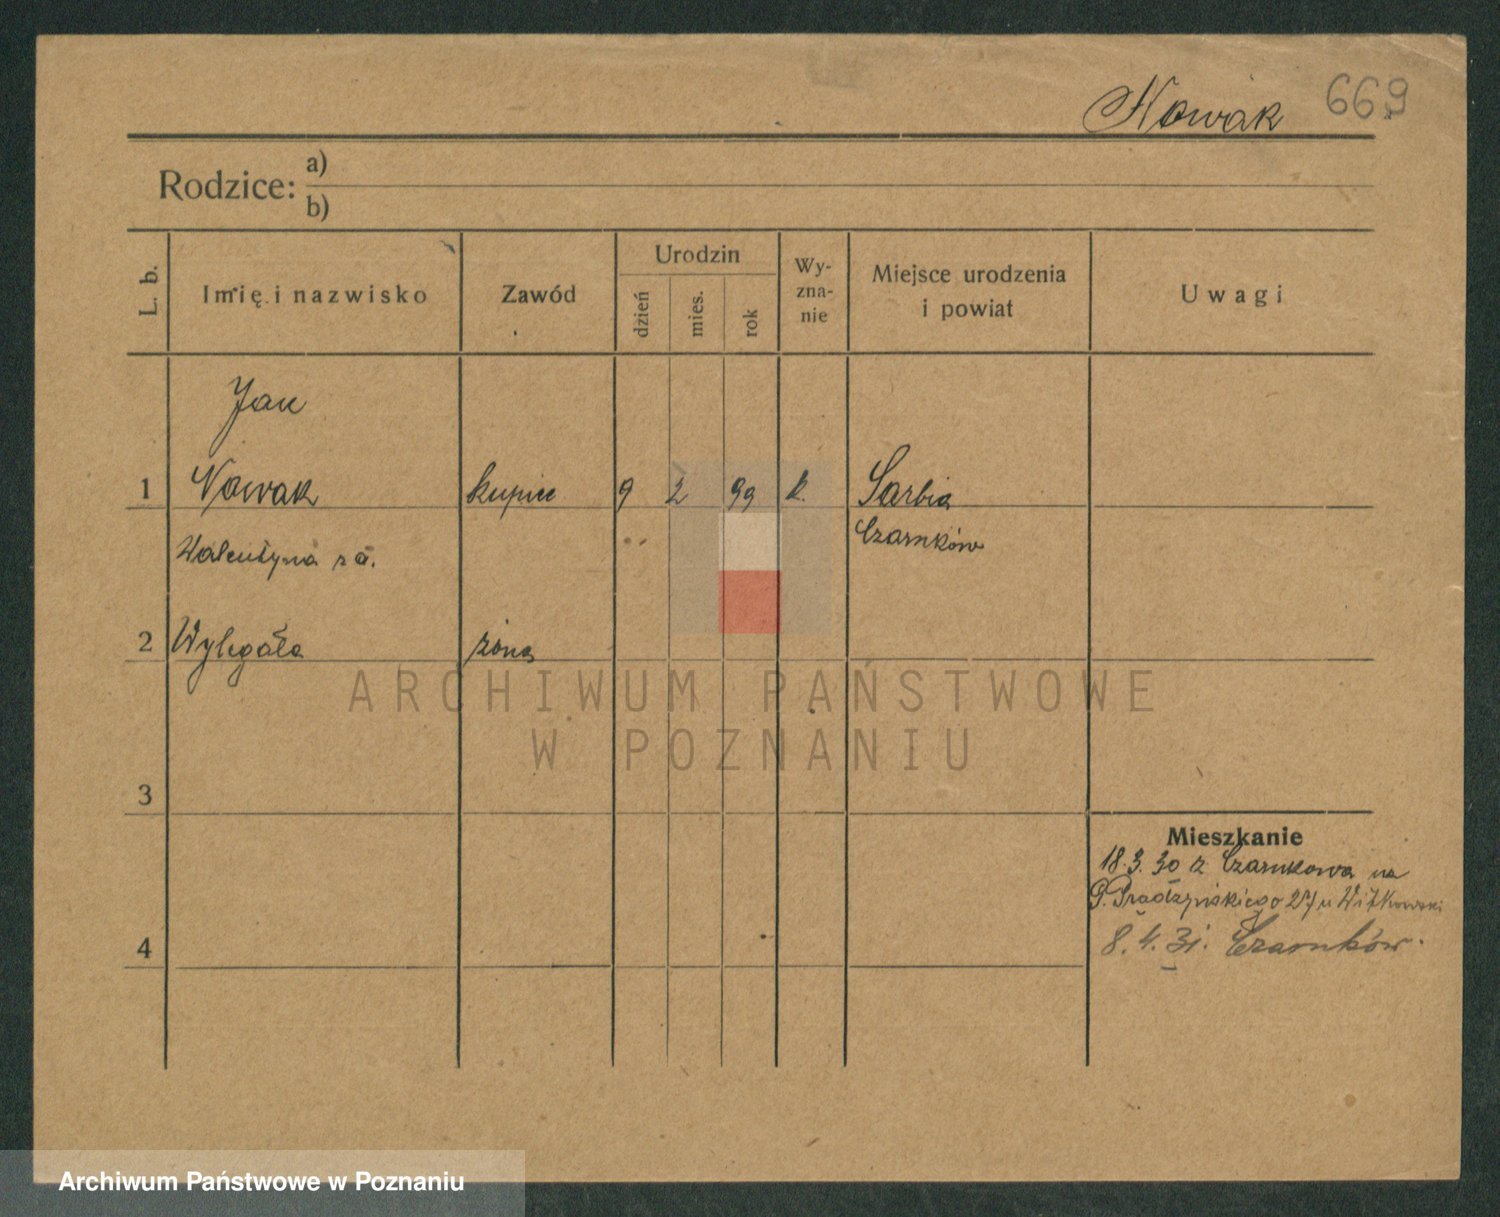 Nowak 669
Rodzice: a)
b)
L. b. Imię i nazwisko Zawód Urodzin dzień mies. rok Wy-zna-nie Miejsce urodzenia i powiat Uwagi
Jan
1 Nowak kupiec 9 2 99 k. Sarbia
Czarnków
Walentyna z d.
2 Wylegała żona
ARCHIWUM PAŃSTWOWE
W POZNANIU
3
Mieszkanie
18.3.30 z Czarnkowa na
P. Prądzyńskiego u Witkowski
4 8.4.31. Czarnków.
Archiwum Państwowe w Poznaniu